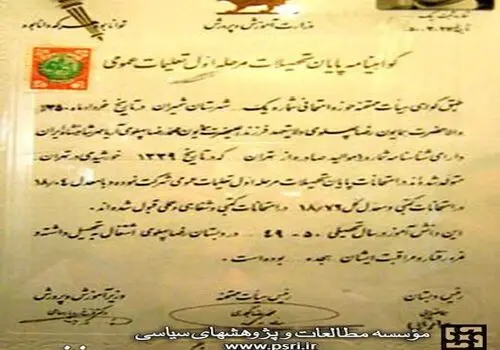 توانا بود هر که دانا بود
وزارت آموزش و پرورش
گواهینامه پایان تحصیلات مرحله اول تعلیمات عمومی
طبق گواهی هیأت ممتحنه حوزه امتحانی شماره یک شهرستان شمیران در تاریخ خرداد ماه
والاحضرت همایون رضا پهلوی ولایتعهد فرزند اعلیحضرت همایون محمد رضا پهلوی آریامهر شاهنشاه ایران
دارای شناسنامه شماره صادره از تهران که در تاریخ ۱۳۳۹ خورشیدی در تهران
متولد شده‌اند در امتحانات پایان تحصیلات مرحله اول تعلیمات عمومی شرکت نموده و با معدل ۱۸/۰۴
در امتحانات کتبی و معدل کل ۱۸/۷۶ در امتحانات کتبی و شفاهی و عملی قبول شده‌اند.
این دانش آموز در سال تحصیلی ۵۰ - ۴۹ در دبستان رضا پهلوی اشتغال به تحصیل داشته و
نمره رفتار و مراقبت ایشان هجده بوده است.
رئیس دبستان رئیس هیأت ممتحنه وزیر آموزش و پرورش
موسسه مطالعات و پژوهشهای سیاسی
www.psri.ir